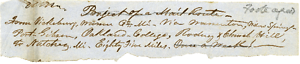 Project of a Mail Route
From Vicksburg, Warren Co. Mi. Via Warrenton,
Port Gibson, Oakland College, Rodney & Church Hill
to Natchez, Mi. Eighty Five Miles. Once a Week